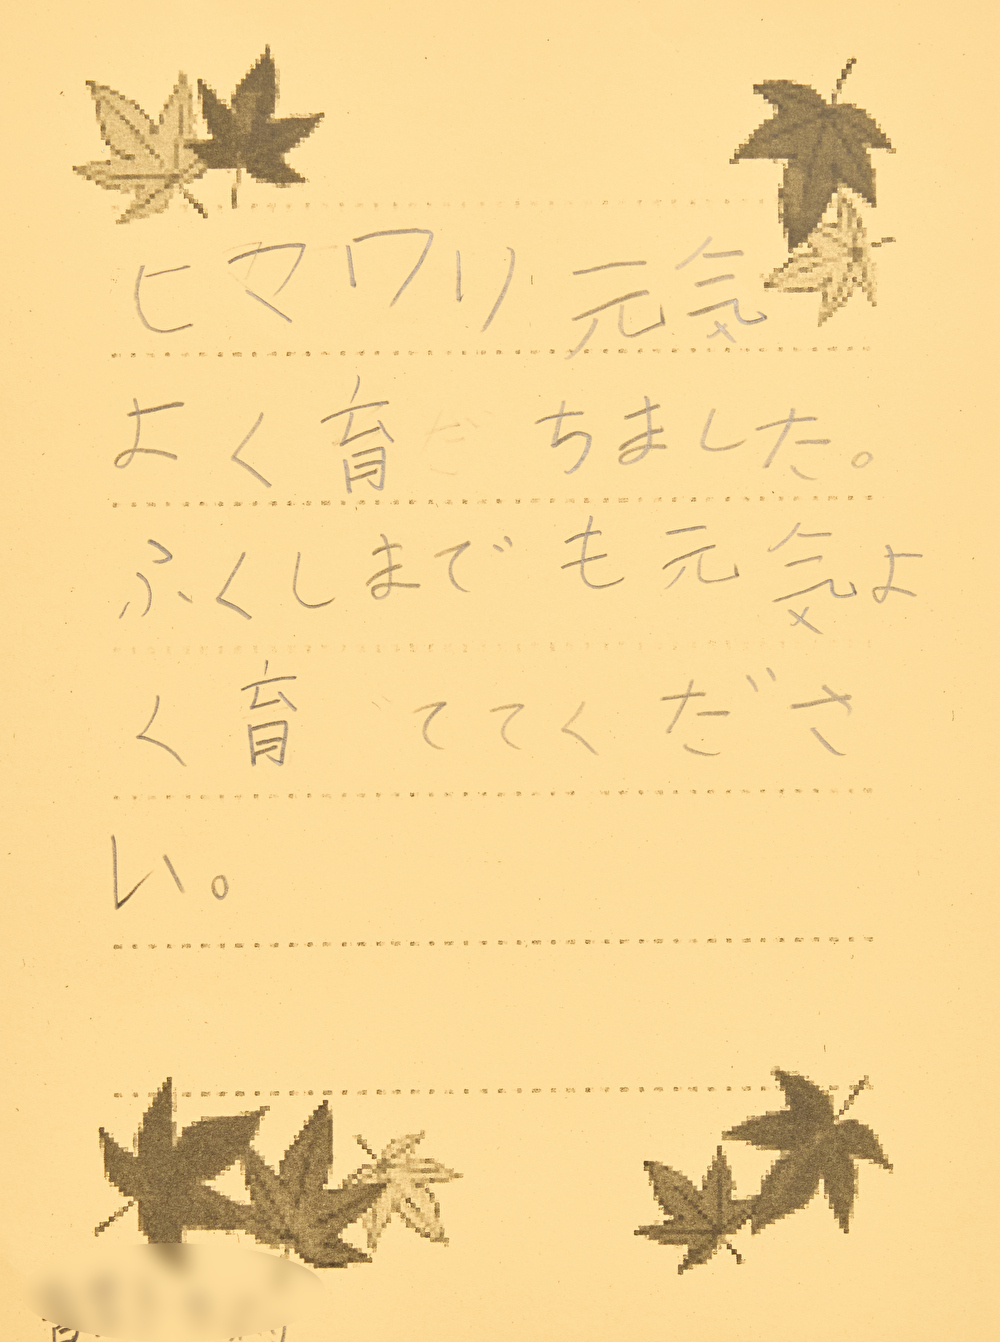 ヒマワリ元気
よく育ちました。
ふくしまでも元気よ
く育ててくださ
い。